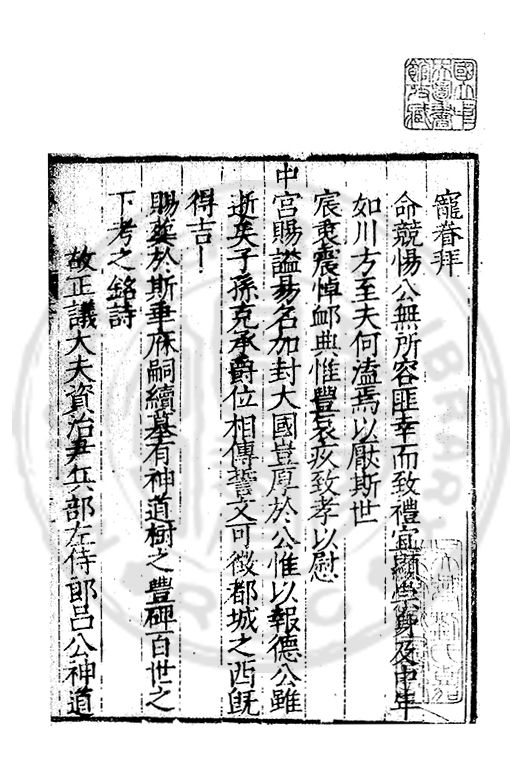 寵眷拜
命兢惕公無所容匪幸而致禮宜顯榮身及中年
如川方至夫何溘焉以厭斯世
宸衷震悼卹典惟豐哀疚致孝以慰
中宮賜謚易名加封大國豈厚於公惟以報德公雖
逝矣子孫克承爵位相傳誓文可徵都城之西旣
得吉卜
賜塟於斯聿庥嗣續墓有神道樹之豐碑百世之
下考之銘詩
故正議大夫資治尹兵部左侍郎呂公神道
國立中
央圖書
館收藏